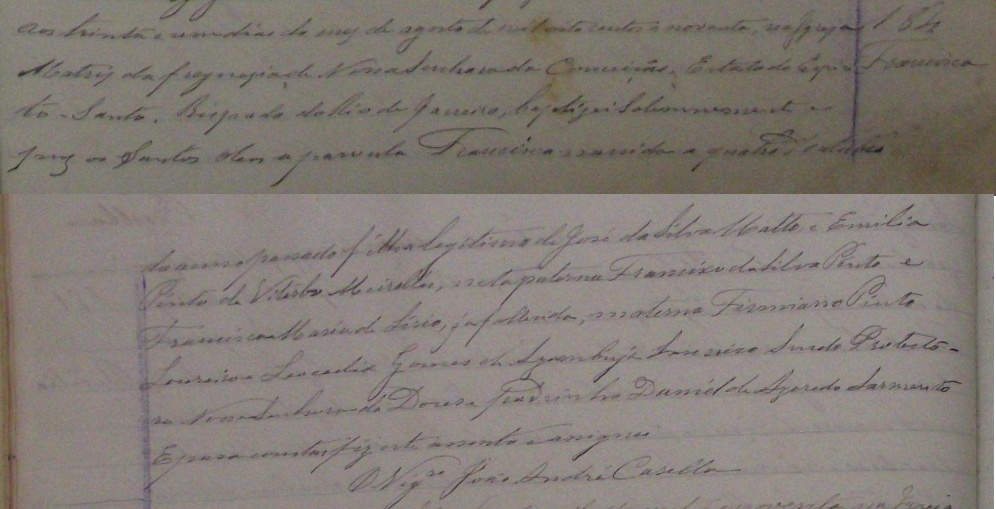 Aos trinta e um dias do mez de agosto de mil oito centos e noventa, na Igreja
184
Matriz da freguezia de Nossa Senhora da Conceição, Estado do Espiri
Francisca
to-Santo, Bispado do Rio de Janeiro, baptizei solemnemente e
puz os Santos oleos a parvula Francisca nascida a quatro d'outubro
do anno passado filha legitima de José da Silva Matto, e Emilia
Pinto de Viterbo Meirelles, neta paterna Francisco da Silva Pinto e
Francisca Maria de Lirio, ja fallecida, materna Firmiano Pinto
Loureiro e Leocadia Gomes de Azambuja Sendo Protecto-
ra Nossa Senhora da Dores e padrinho Daniel de Azeredo Sarmento
E para constar fiz este assento e assignei
O Vigrº João André Casella